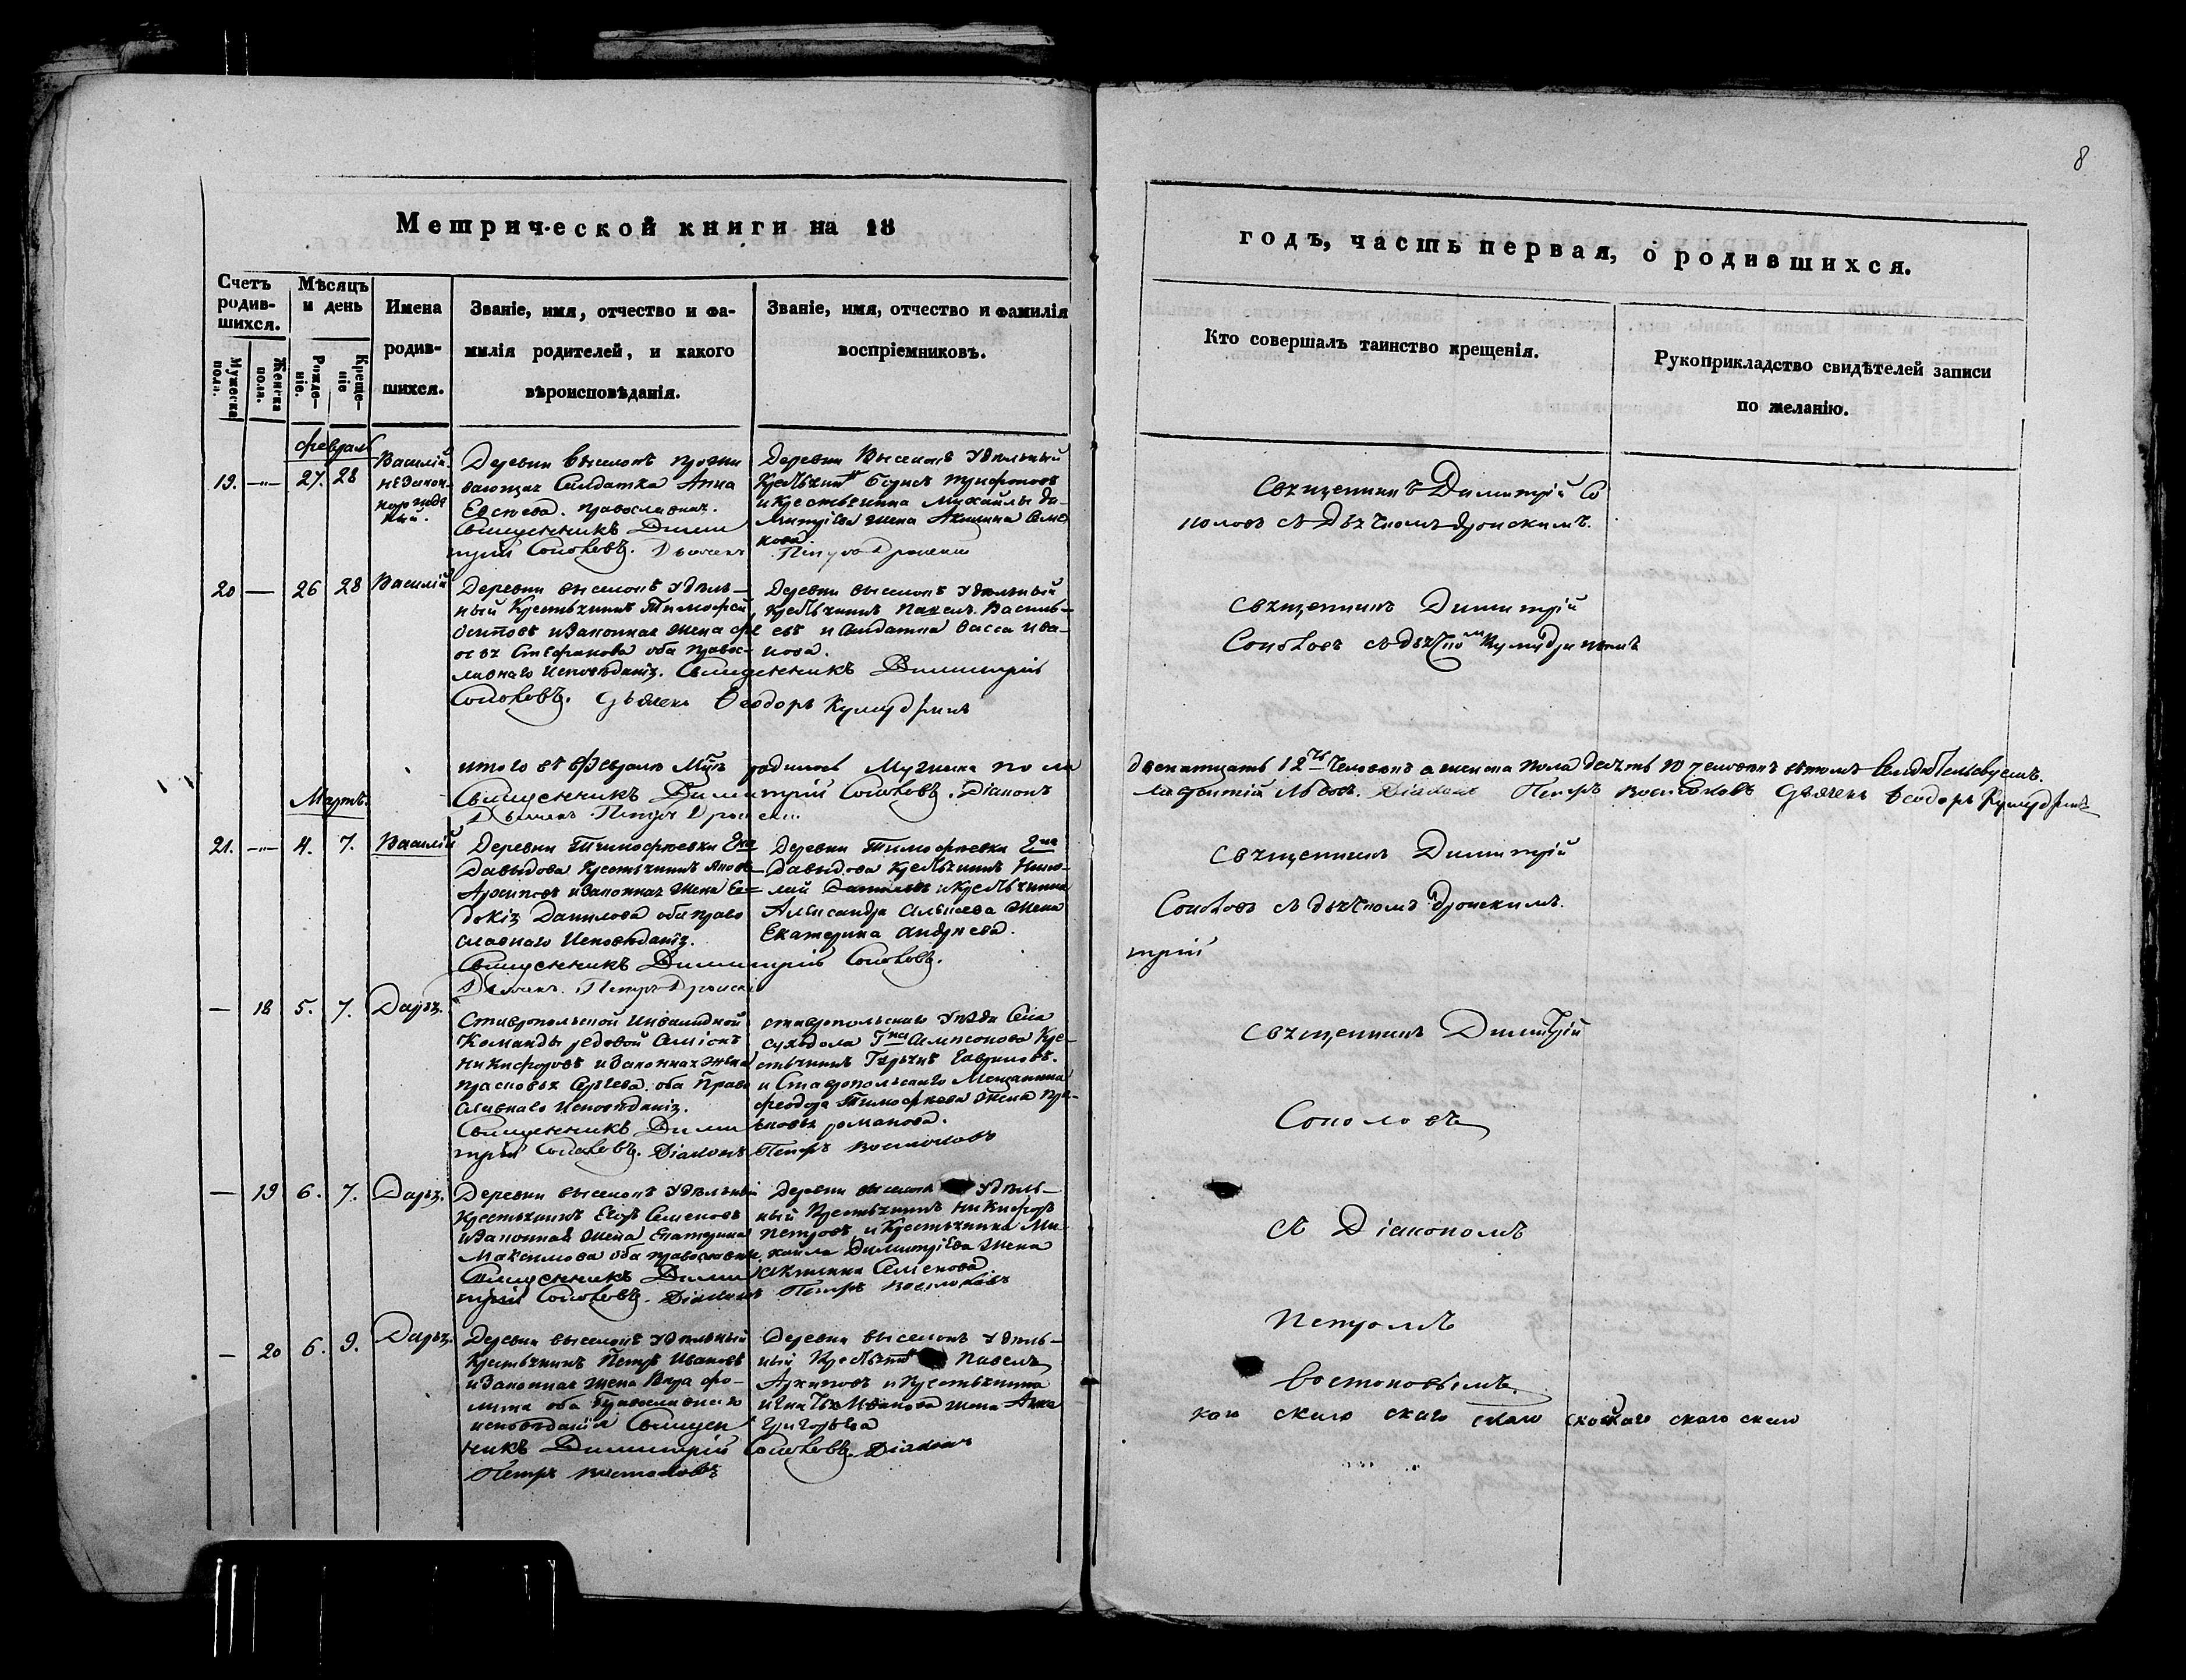 8
Метрической книги на 18
годъ, часть первая, о родившихся.
Счетъ родив-шихся.
Мужеска пола.
Женска пола.
Мѣсяцъ и день
Рожде-ніе.
Креще-ніе
Имена родив-шихся.
Званіе, имя, отчество и фа-
милія родителей, и какого
вѣроисповѣданія.
Званіе, имя, отчество и фамилія
воспріемниковъ.
Кто совершалъ таинство крещенія.
Рукоприкладство свидѣтелей записи
по желанію.
февраль
19. —"— 27. 28
Василій
незакон-
Деревни Выселокъ прожи
вающая Солдатка Анна
православная.
Священникъ Дими
трій Соколовъ. Дьячекъ
Деревни Выселокъ Удѣльный
Борисъ Трифоновъ
и крестьянина Михайлы Ди-
митріева жена Акилина Семе
нова.
Петръ Тронскій
Священникъ Димитрій Со
коловъ съ Дьячкомъ Тронскимъ.
20 — 26 28
Василій
Деревни Выселокъ Удѣль-
ный Крестьянинъ Тимофей
Осиповъ и законная жена Ѳе
Стефанова оба правос-
лавнаго исповѣданія. Священникъ Димитрій
Соколовъ. Дьячекъ Ѳеодоръ
Деревни Выселокъ Удѣльный
крестьянинъ Павелъ Василь-
евъ и Солдатка Васса Ива-
нова.
Священникъ Димитрій
Соколовъ съ дьячкомъ
итого въ Февралѣ Мцѣ родилось Мужска пола
двенатцать 12ть Человѣкъ а женска пола десять 10 человѣкъ въ томъ Свидѣтельствуемъ.
Священникъ Димитрій Соколовъ. Діаконъ
Петръ Востоковъ Дьячекъ Ѳеодоръ
Дьячекъ Петръ Тронскій
Мартъ.
21. —"— 4. 7.
Василій
Деревни Тимофѣевки
Давыдова Крестьянинъ Яковъ
Архиповъ и законная жена Ев-
докія Данилова оба право
славнаго исповѣданія.
Священникъ Димитрій Соколовъ.
Дьячекъ. Петръ Тронскій
Деревни Тимофѣевки
Давыдова крестьянинъ Нико-
лай и крестьянина
Александра Алексѣева жена
Екатерина Андреева.
Священникъ Димитрій
Соколовъ съ дьячкомъ Тронскимъ.
трій
— 18 5. 7.
Дарья.
Ставропольской Инвалидной
Команды рядовой
Никифоровъ и законная жена
Прасковья Сергѣева оба Право
славнаго исповѣданія.
Священникъ Дими
трій Соколовъ. Діаконъ Петръ Востоковъ
Ставропольскаго Уѣзда Села
Суходола Гна Самсонова Кре-
стьянинъ Гавриловъ.
и Ставропольскаго Мещанина
Ѳеодора Тимофѣева жена Пра-
сковья Романова.
Священникъ Димитрій
Соколовъ
— 19 6. 7.
Дарья.
Деревни Выселокъ Удѣльный
крестьянинъ Егоръ Семеновъ
и законная жена Екатерина
Максимова оба православные
Священникъ Дими
трій Соколовъ. Діаконъ Петръ Востоковъ
Деревни Выселокъ Удѣль-
ный Крестьянинъ Никифоръ
Петровъ, и крестьянина Ми-
хайла Димитріева жена
Акилина Семенова
съ Діакономъ
Петромъ
Востоковымъ.
— 20 6. 9.
Дарья.
Деревни Выселокъ Удѣльный
Крестьянинъ Петръ Ивановъ
и законная жена Вѣра Фо-
мина оба Православнаго
исповѣданія Священ
никъ Димитрій Соколовъ. Діаконъ
Петръ Востоковъ
Деревни Выселокъ Удѣль-
ный Крестьянинъ Павелъ
Архиповъ и крестьянина
Игнатья Иванова жена Анна
Григорьева
каго скаго скаго скаго скаго скаго скаго